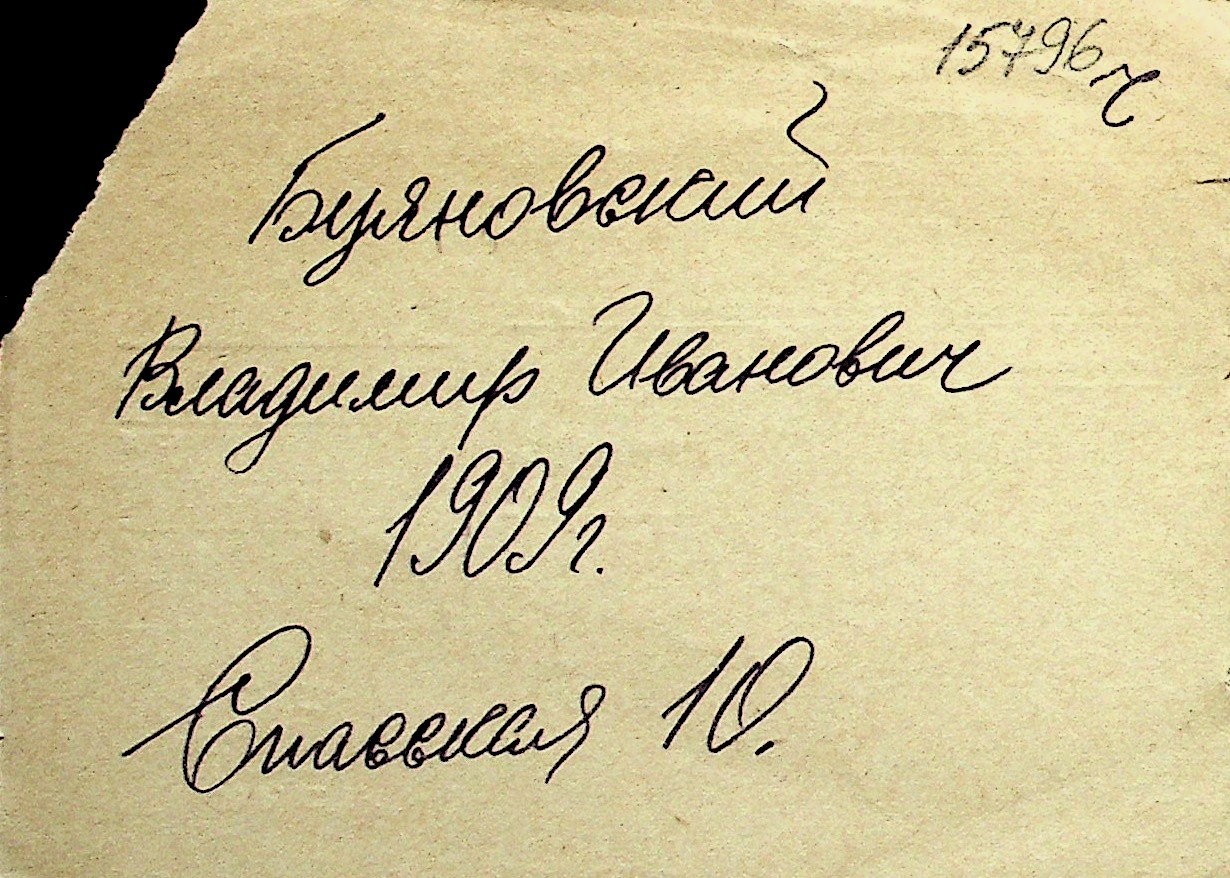 15796ч
Буяновский
Владимир Иванович
1909г.
Спасская 10.